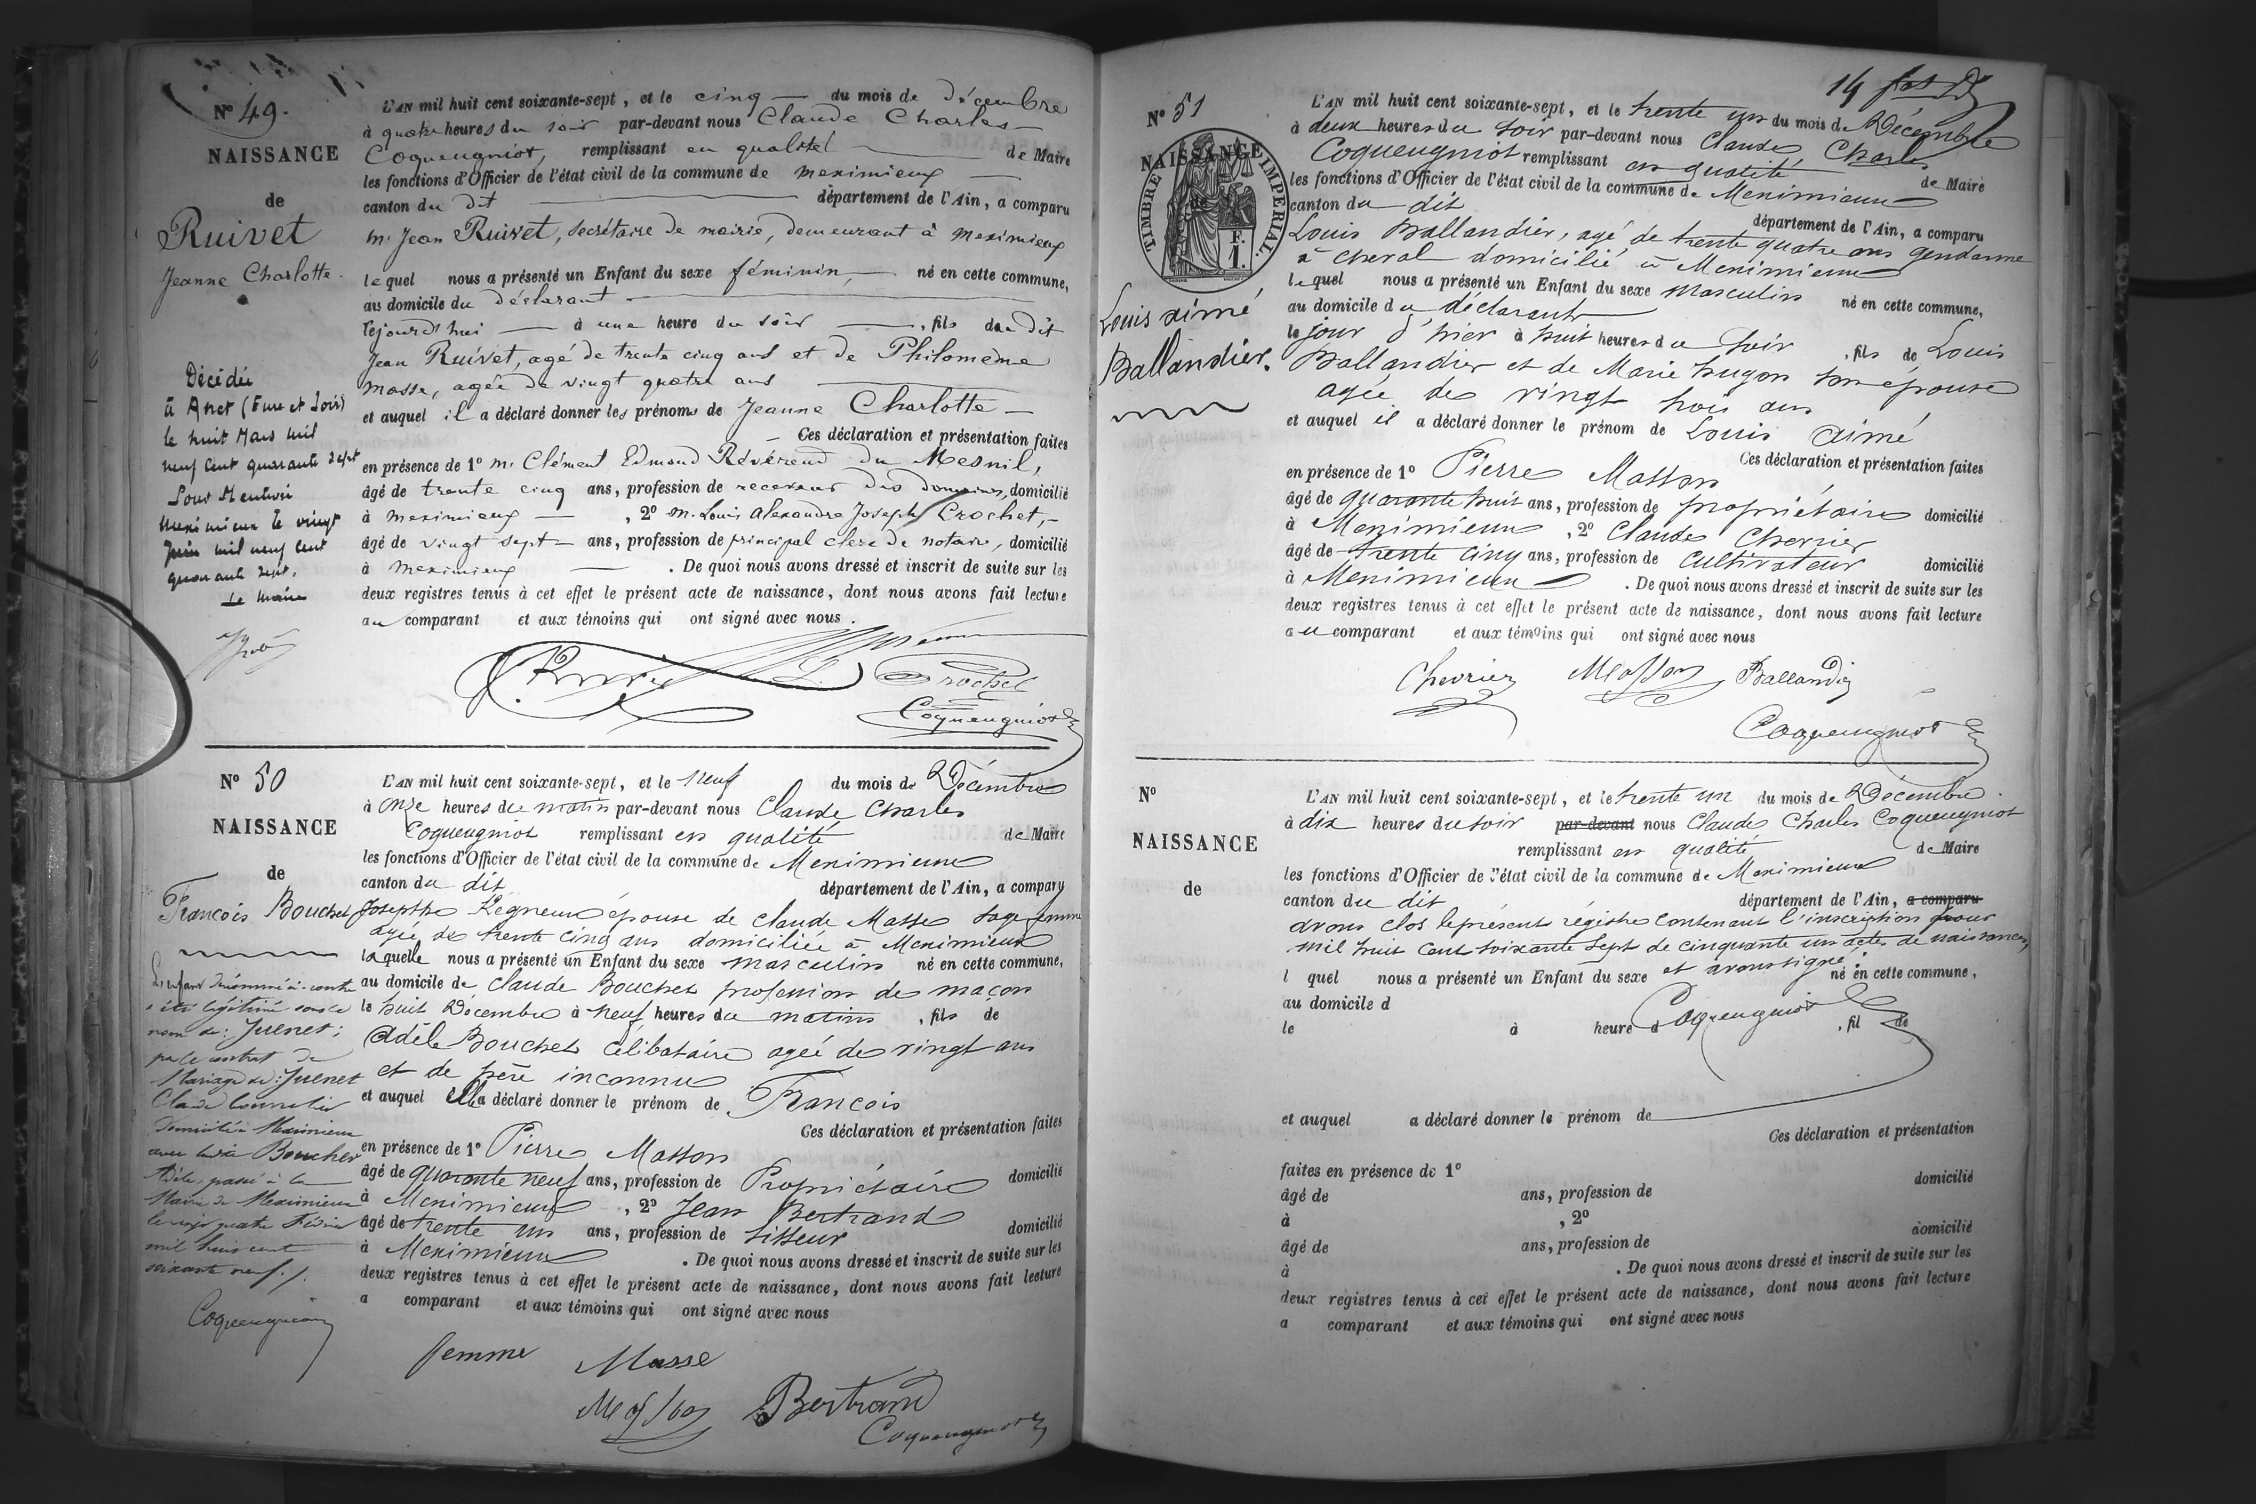 No 49.
NAISSANCE
de
Ruivet
Jeanne Charlotte.
Décédée
à Anet (Eure et Loir)
le huit Mars mil
neuf cent quarante sept
Meximieux le vingt
Juin mil neuf cent
quarante sept.
Le Maire
L'AN mil huit cent soixante-sept, et le cinq du mois de décembre
à quatre heures du soir par-devant nous Claude Charles
Coqueugniot, remplissant en qualité de Maire
les fonctions d'Officier de l'état civil de la commune de Meximieux
canton du dit département de l'Ain, a comparu
Mr Jean Ruivet, secrétaire de mairie, demeurant à Meximieux
lequel nous a présenté un Enfant du sexe féminin, né en cette commune,
au domicile du déclarant
cejourd'hui à une heure du soir, fils du dit
Jean Ruivet, agé de trente cinq ans et de Philomène
Masse, agée de vingt quatre ans
et auquel il a déclaré donner les prénoms de Jeanne Charlotte
Ces déclaration et présentation faites
en présence de 1° Mr Clément Edmond Révérend du Mesnil,
âgé de trente cinq ans, profession de receveur des domaines, domicilié
à Meximieux, 2° M. Louis Alexandre Joseph Crochet,
âgé de vingt sept ans, profession de principal clerc de notaire, domicilié
à Meximieux. De quoi nous avons dressé et inscrit de suite sur les
deux registres tenus à cet effet le présent acte de naissance, dont nous avons fait lecture
au comparant et aux témoins qui ont signé avec nous.
Ruivet
Crochet
Coqueugniot
No 50
NAISSANCE
de
François Bouchet
L'enfant dénommé ci-contre
a été légitimé sous le
nom de: Juenet;
par le contrat de
Mariage de: Juenet
Claude
domicilié à Meximieux
avec Bouchet
Adèle, passé à la
Mairie de Meximieux
le vingt quatre Février
mil huit cent
soixante neuf.
Coqueugniot
L'AN mil huit cent soixante-sept, et le neuf du mois de Décembre
à onze heures du matin par-devant nous Claude Charles
Coqueugniot remplissant en qualité de Maire
les fonctions d'Officier de l'état civil de la commune de Meximieux
canton du dit département de l'Ain, a comparu
Josephte épouse de Claude Masse sage femme
agée de trente cinq ans domiciliée à Meximieux
laquelle nous a présenté un Enfant du sexe masculin né en cette commune,
au domicile de Claude Bouchet profession de maçon
le huit Décembre à neuf heures du matin, fils de
Adèle Bouchet célibataire agée de vingt ans
et de père inconnu
et auquel elle a déclaré donner le prénom de François
Ces déclaration et présentation faites
en présence de 1° Pierre Masson
âgé de quarante neuf ans, profession de Propriétaire domicilié
à Meximieux, 2° Jean Bertrand
âgé de trente un ans, profession de tisseur domicilié
à Meximieux. De quoi nous avons dressé et inscrit de suite sur les
deux registres tenus à cet effet le présent acte de naissance, dont nous avons fait lecture
a comparant et aux témoins qui ont signé avec nous
femme Masse
Masson Bertrand
Coqueugniot
14
No 51
NAISSANCE
de
TIMBRE IMPERIAL.
F.
1.
Louis aimé
Ballandier.
L'AN mil huit cent soixante-sept, et le trente un du mois de Décembre
à deux heures du soir par-devant nous Claude Charles
Coqueugniot remplissant en qualité de Maire
les fonctions d'Officier de l'état civil de la commune de Meximieux
canton du dit département de l'Ain, a comparu
Louis Ballandier, agé de trente quatre ans gendarme
à cheval domicilié à Meximieux
lequel nous a présenté un Enfant du sexe Masculin né en cette commune,
au domicile du déclarant
le jour d'hier à huit heures du soir, fils de Louis
Ballandier et de Marie hugon son épouse
agée de vingt trois ans
et auquel il a déclaré donner le prénom de Louis aimé
Ces déclaration et présentation faites
en présence de 1° Pierre Masson
âgé de quarante huit ans, profession de propriétaire domicilié
à Meximieux, 2° Claude Chevrier
âgé de trente cinq ans, profession de cultivateur domicilié
à Meximieux. De quoi nous avons dressé et inscrit de suite sur les
deux registres tenus à cet effet le présent acte de naissance, dont nous avons fait lecture
au comparant et aux témoins qui ont signé avec nous
Chevrier Masson Ballandier
Coqueugniot
No
NAISSANCE
de
L'AN mil huit cent soixante-sept, et le trente un du mois de Décembre
à dix heures du soir par-devant nous Claude Charles Coqueugniot
remplissant en qualité de Maire
les fonctions d'Officier de l'état civil de la commune de Meximieux
canton du dit département de l'Ain, a comparu
avons clos le présent régistre contenant l'inscription pour
mil huit cent soixante sept de cinquante un actes de naissances,
et avons signé.
l quel nous a présenté un Enfant du sexe né en cette commune,
au domicile d
le à heure d, fil de
Coqueugniot
et auquel a déclaré donner le prénom de
Ces déclaration et présentation
faites en présence de 1° domicilié
âgé de ans, profession de
à, 2° domicilié
âgé de ans, profession de
à. De quoi nous avons dressé et inscrit de suite sur les
deux registres tenus à cet effet le présent acte de naissance, dont nous avons fait lecture
a comparant et aux témoins qui ont signé avec nous